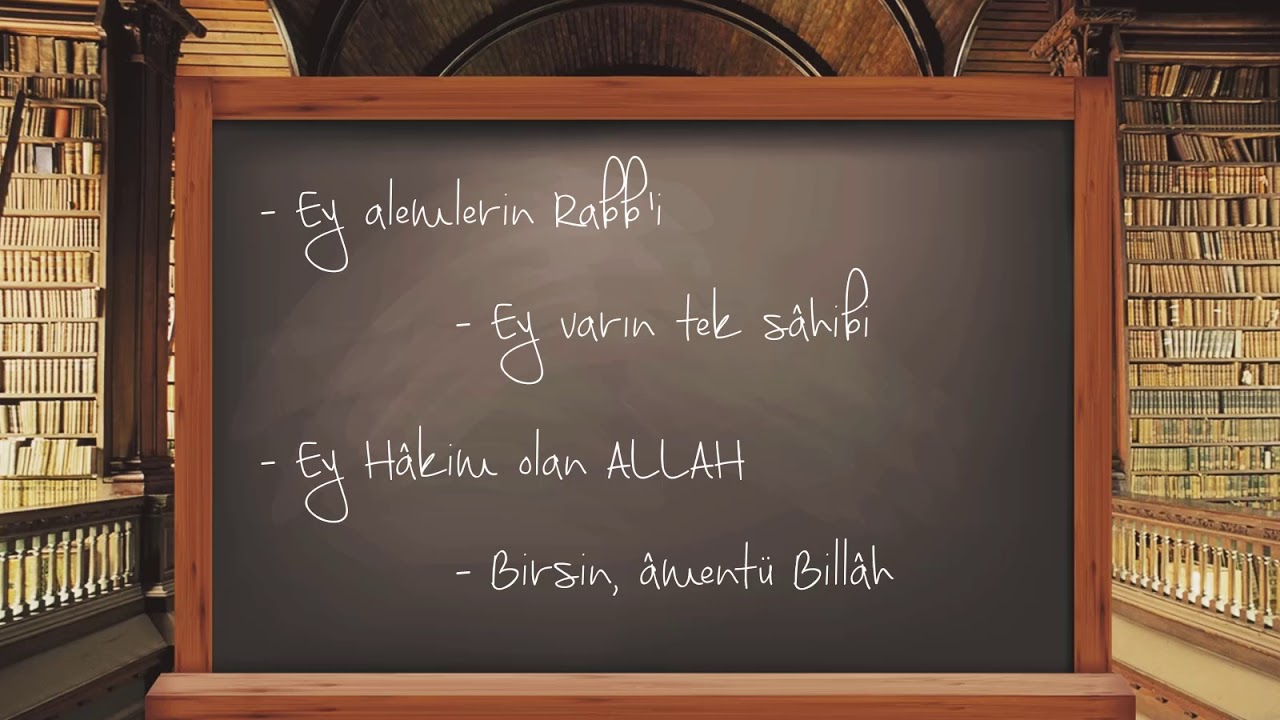 - Ey alemlerin Rabb'i
- Ey varın tek sâhibi
- Ey Hâkim olan ALLAH
- Birsin, âmentü Billâh